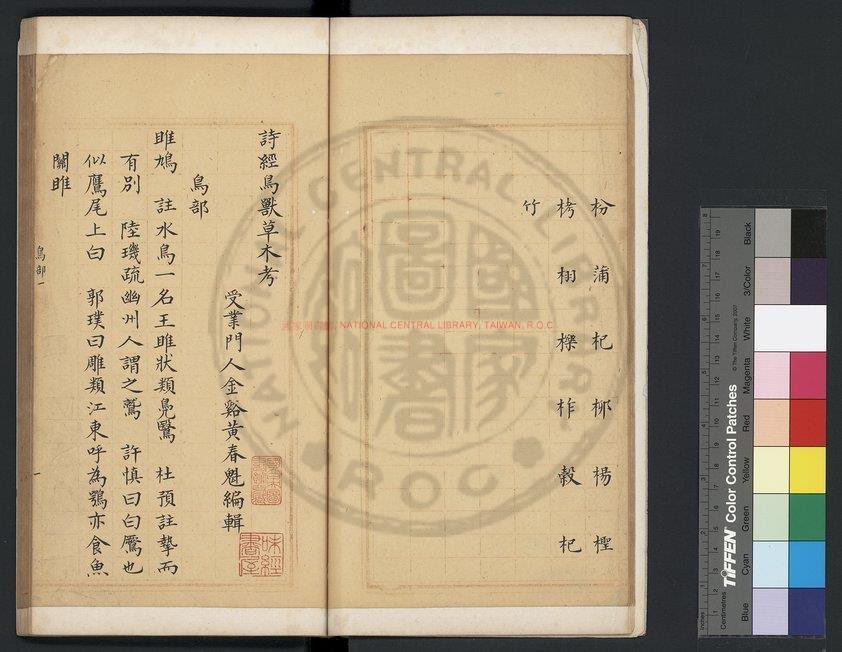 枌 蒲 杞 柳 楊 檉
栲 栩 櫟 柞 榖 杞
竹
詩經鳥獸草木考
受業門人金谿黃春魁編輯
鳥部
雎鳩 註水鳥一名王雎狀類鳧鷖 杜預註摯而
有別 陸璣疏幽州人謂之鷲 許慎曰白鷢也
似鷹尾上白 郭璞曰雕類江東呼為鶚亦食魚
關雎
鳥部 一
味經書屋
國家圖書館, NATIONAL CENTRAL LIBRARY, TAIWAN, R.O.C.
NATIONAL CENTRAL LIBRARY
ROC
TIFFEN Color Control Patches
© The Tiffen Company, 2007
Centimetres
Inches
Blue Cyan Green Yellow Red Magenta White 3/Color Black